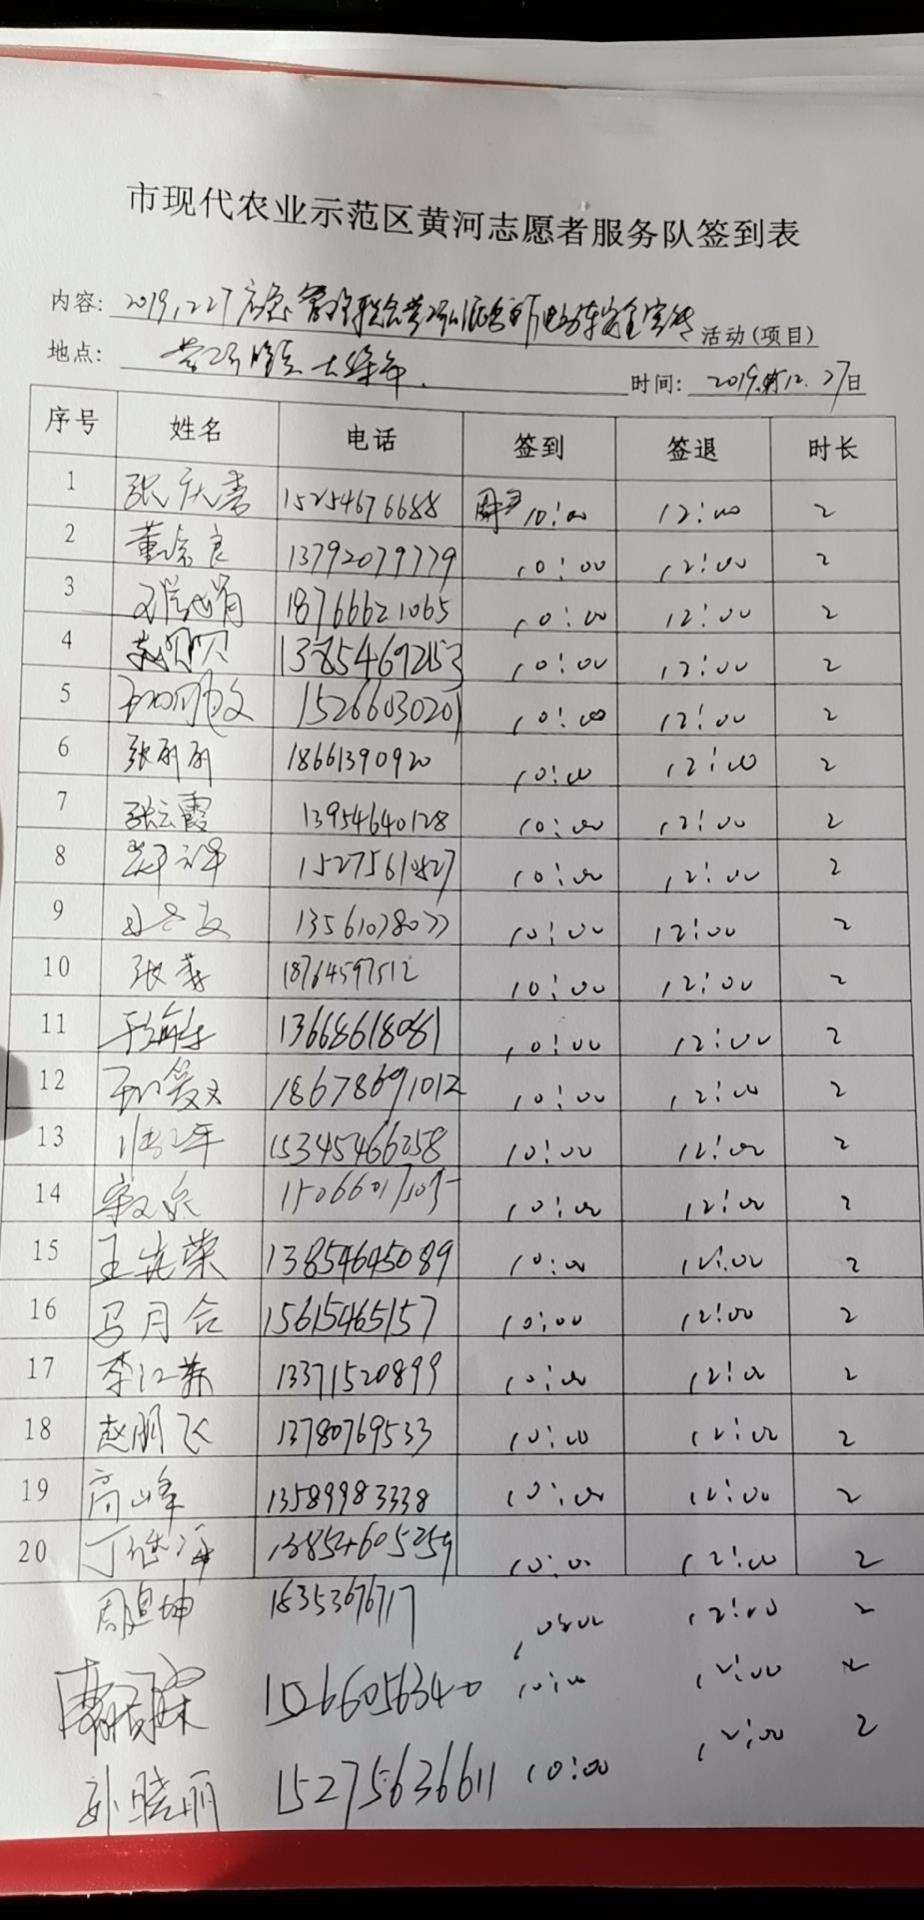 市现代农业示范区黄河志愿者服务队签到表
内容: 2019.12.27 应急管理 电动车安全宣传 活动(项目)
地点: 时间: 2019. 12. 27日
序号 姓名 电话 签到 签退 时长
1 张庆喜 15254676688 10:00 12:00 2
2 董 良 13792079779 10:00 12:00 2
3 18766621065 10:00 12:00 2
4 13854692153 10:00 12:00 2
5 15266030201 10:00 12:00 2
6 张丽丽 18661390920 10:00 12:00 2
7 张云霞 13954640128 10:00 12:00 2
8 15275610827 10:00 12:00 2
9 13561078077 10:00 12:00 2
10 张 18764597512 10:00 12:00 2
11 13668618081 10:00 12:00 2
12 18678691012 10:00 12:00 2
13 15345466258 10:00 12:00 2
14 10:00 12:00 2
15 王先荣 13854645089 10:00 12:00 2
16 马月合 15615465157 10:00 12:00 2
17 李江燕 13371520899 10:00 12:00 2
18 赵鹏飞 13780769533 10:00 12:00 2
19 高峰 13589983338 10:00 12:00 2
20 丁 13854605259 10:00 12:00 2
周 坤 18353676717 10:00 12:00 2
15266056340 10:00 12:00 2
孙晓丽 15275636611 10:00 12:00 2